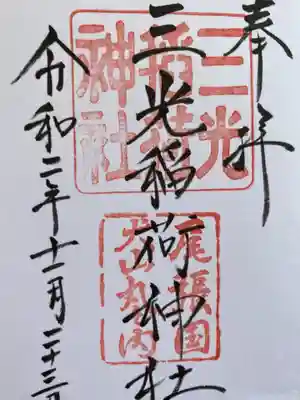 奉拝
三光稲荷神社
令和二年十一月二十三日
三光
稲荷
神社
尾張国
犬山丸内